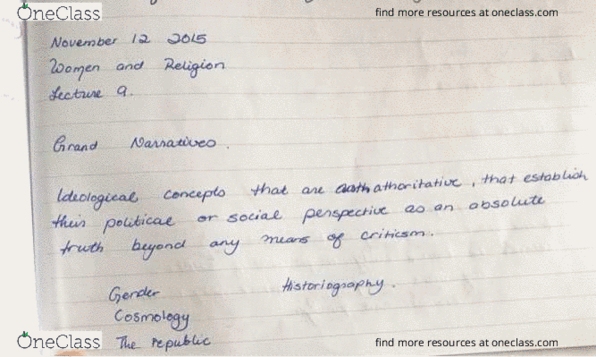 OneClass
find more resources at oneclass.com
November 12 2015
Women and Religion
Lecture 9.
Grand Narratives.
Ideological concepts that are athoritative, that establish
their political or social perspective as an absolute
truth beyond any means of criticsm.
Gender Historiography.
Cosmology
The republic
OneClass
find more resources at oneclass.com